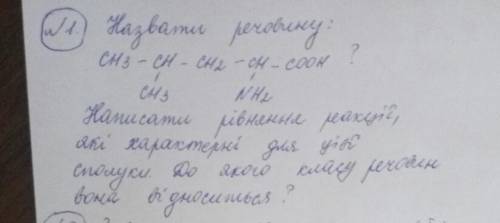 №1. Назвати речовину:
CH3 - CH - CH2 - CH - COOH ?
CH3 NH2
Написати рівняння реакцій,
які характерні для цієї
сполуки. До якого класу речовин
вона відноситься?